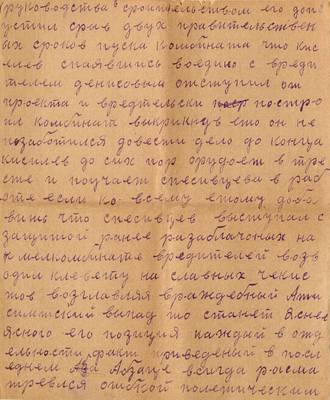 руководства строительством его доп
устил срав двух правительствен
ых сроков пуска комбината что кис
елев спаявшись воедино с вреди
телем денисовым отступил от
проекта и вредительски постро
ил комбинат выкрикнув что он не
позаботился довести дело до конца
киселев до сих пор орудовт в тре
сте и поучает спесивцева в раб
оте если ко всему этому доба
вить что спесивцев выступал с
защитой ранее разаблачоных на
к мелкомбинате вредителей возв
одил клевету на славных чекис
тов возглавляя враждебный Анти
симитский выпад то станет яснее
ясного его позиция каждый в отд
ельности факт приведеный в посл
еднем Абзаце всегда расма
тревлся ошибкой политическим